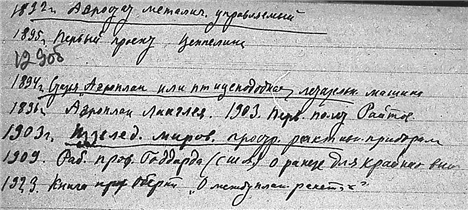 1892 г. Аэростат металич. управляемый
1895. Первый проект Цеппелина
1894 г. Аэроплан или птицеподобная летательн. машина
1896. Аэроплан Ланглея. 1903. Перв. полет Райтов
1903 г. Исслед. миров. простр. реактивн. прибором
1909. Раб. проф. Годдарда (С.Ш.А.) о ракете для крайних выс
1923. Книга проф. Оберта "О междуплан. ракетах"